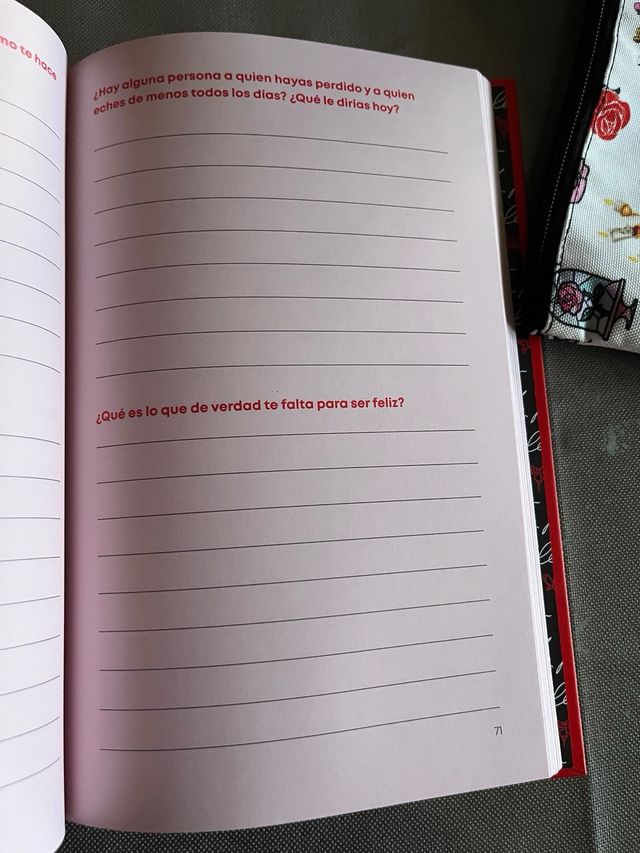 mo te hace
¿Hay alguna persona a quien hayas perdido y a quien
eches de menos todos los días? ¿Qué le dirías hoy?
¿Qué es lo que de verdad te falta para ser feliz?
71